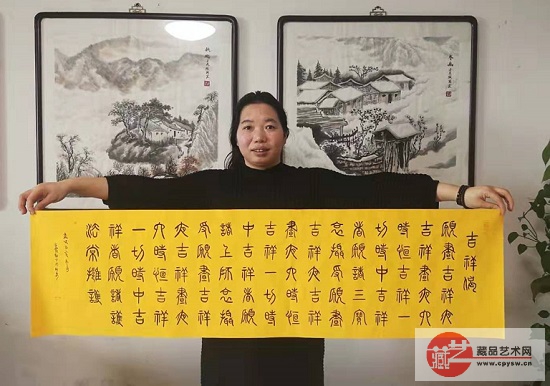 吉祥偈
願晝吉祥夜
吉祥晝夜六
時恒吉祥一
切時中吉祥
者願諸三寶
哀攝受願晝
吉祥夜吉祥
晝夜六時恒
吉祥一切時
中吉祥者願
諸上師哀攝
受願晝吉祥
夜吉祥晝夜
六時恒吉祥
一切時中吉
祥者願諸護
法常擁護
藏艺
藏品艺术网
www.cpysw.cn